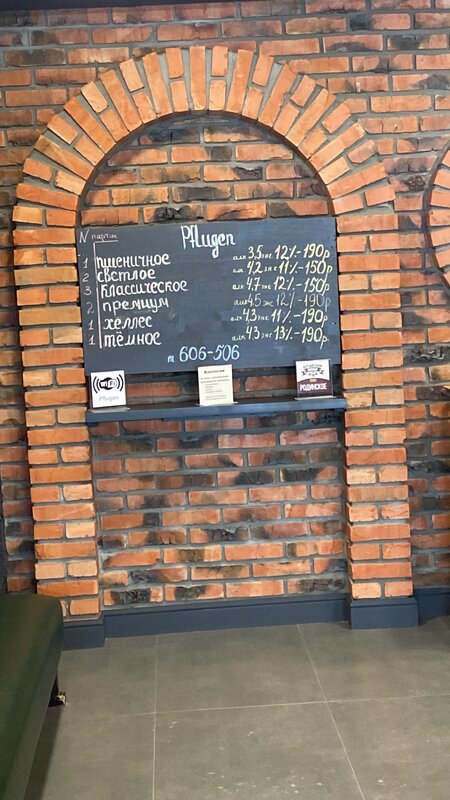 N партии Pflugen
1 пшеничное алк 3,5 экс 12% - 190р
2 светлое алк 4,2 экс 11% - 150р
3 классическое алк 4,7 экс 12% - 150р
2 премиум алк 4,5 экс 12% - 190р
1 хеллес алк 4,3 экс 11% - 190р
1 тёмное алк 4,3 экс 13% - 190р
т. 606-506
WiFi
Pflugen
РОДИНСКОЕ